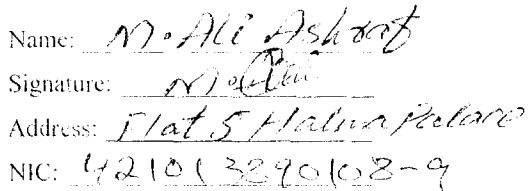 Name: M. Ali Ashraf
Signature: M. Ali
Address: Flat 5 Halima Palace
NIC: 421013890108-9